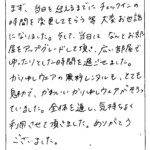 まず、当日を迎えるまでにチェックインの
時間を変更してもらう等 大変お世話
になりました。そして、当日は なんとお部
屋をアップグレードして頂き、広い部屋で
ゆったりとした時間を過ごせました。
かりゆしウェアの無料レンタルも、とても
魅力で、かわいいかりゆしウェアがそろっ
ていました。全体を通し、気持ちよく
利用させて頂きました。ありがとう
ございました。